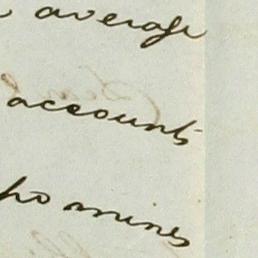 average
accounts
who mines